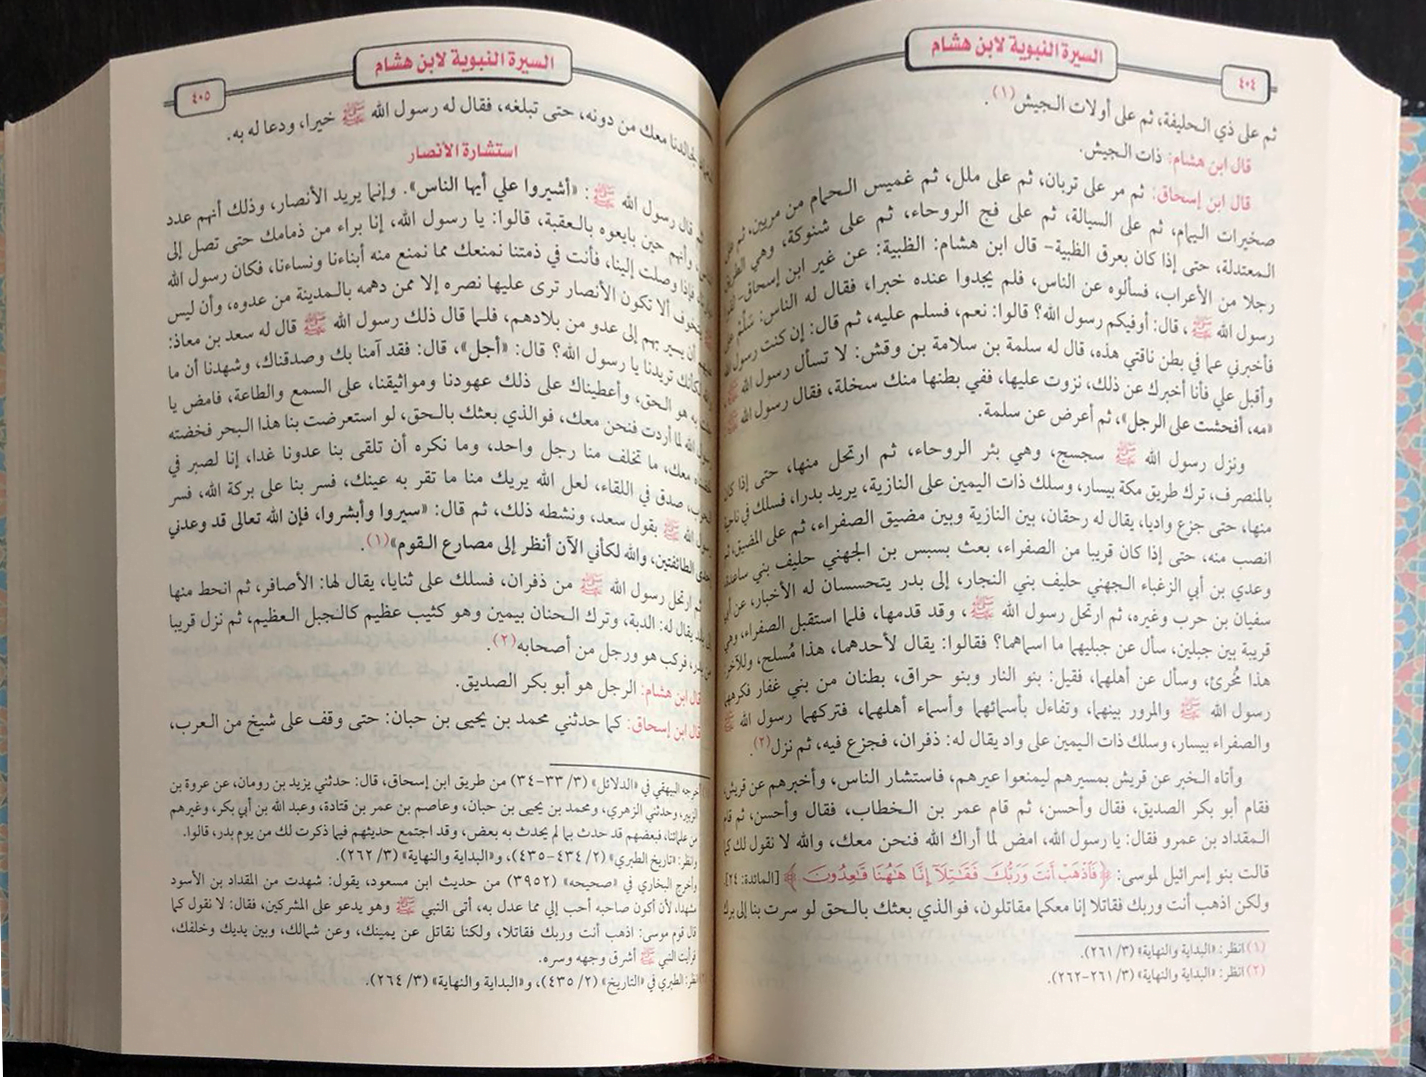 السيرة النبوية لابن هشام
٤٠٤
ثم على ذي الحليفة، ثم على أولات الجيش(١).
قال ابن هشام: ذات الجيش.
قال ابن إسحاق: ثم مر على تربان، ثم على ملل، ثم غميس الحمام من مريين، ثم على
صخيرات اليمام، ثم على السيالة، ثم على فج الروحاء، ثم على شنوكة، وهي الطريق
المعتدلة، حتى إذا كان بعرق الظبية- قال ابن هشام: الظبية: عن غير ابن إسحاق-
رجلا من الأعراب، فسألوه عن الناس، فلم يجدوا عنده خبرا، فقال له الناس: سَلِّم على
رسول الله ﷺ، قال: أوفيكم رسول الله؟ قالوا: نعم، فسلم عليه، ثم قال: إن كنت رسول الله
فأخبرني عما في بطن ناقتي هذه، قال له سلمة بن سلامة بن وقش: لا تسأل رسول الله ﷺ،
وأقبل علي فأنا أخبرك عن ذلك، نزوت عليها، ففي بطنها منك سخلة، فقال رسول الله ﷺ
«مه، أفحشت على الرجل»، ثم أعرض عن سلمة.
ونزل رسول الله ﷺ سجسج، وهي بئر الروحاء، ثم ارتحل منها، حتى إذا كان
بالمنصرف، ترك طريق مكة بيسار، وسلك ذات اليمين على النازية، يريد بدرا، فسلك في ناحية
منها، حتى جزع واديا، يقال له رحقان، بين النازية وبين مضيق الصفراء، ثم على المضيق، ثم
انصب منه، حتى إذا كان قريبا من الصفراء، بعث بسبس بن الجهني حليف بني ساعدة
وعدي بن أبي الزغباء الجهني حليف بني النجار، إلى بدر يتحسسان له الأخبار، عن أبي
سفيان بن حرب وغيره، ثم ارتحل رسول الله ﷺ، وقد قدمها، فلما استقبل الصفراء، وهي
قرية بين جبلين، سأل عن جبليهما ما اسماهما؟ فقالوا: يقال لأحدهما، هذا مُسلح، وللآخر:
هذا مُخرئ، وسأل عن أهلهما، فقيل: بنو النار وبنو حراق، بطنان من بني غفار فكرههما
رسول الله ﷺ والمرور بينهما، وتفاءل بأسمائهما وأسماء أهلهما، فتركهما رسول الله ﷺ
والصفراء بيسار، وسلك ذات اليمين على واد يقال له: ذفران، فجزع فيه، ثم نزل(٢).
وأتاه الخبر عن قريش بمسيرهم ليمنعوا عيرهم، فاستشار الناس، وأخبرهم عن قريش،
فقام أبو بكر الصديق، فقال وأحسن، ثم قام عمر بن الخطاب، فقال وأحسن، ثم قام
المقداد بن عمرو فقال: يا رسول الله، امض لما أراك الله فنحن معك، والله لا نقول لك كما
قالت بنو إسرائيل لموسى: ﴿فَٱذۡهَبۡ أَنتَ وَرَبُّكَ فَقَٰتِلَآ إِنَّا هَٰهُنَا قَٰعِدُونَ﴾ [المائدة: ٢٤].
ولكن اذهب أنت وربك فقاتلا إنا معكما مقاتلون، فوالذي بعثك بالحق لو سرت بنا إلى برك
(١) انظر: «البداية والنهاية» (٣/ ٢٦١).
(٢) انظر: «البداية والنهاية» (٣/ ٢٦١-٢٦٢).
السيرة النبوية لابن هشام
٤٠٥
لجالدنا معك من دونه، حتى تبلغه، فقال له رسول الله ﷺ خيرا، ودعا له به.
استشارة الأنصار
ثم قال رسول الله ﷺ: «أشيروا علي أيها الناس». وإنما يريد الأنصار، وذلك أنهم عدد
وأنهم حين بايعوه بالعقبة، قالوا: يا رسول الله، إنا براء من ذمامك حتى تصل إلى
فإذا وصلت إلينا، فأنت في ذمتنا نمنعك مما نمنع منه أبناءنا ونساءنا، فكان رسول الله
يتخوف ألا تكون الأنصار ترى عليها نصره إلا ممن دهمه بالمدينة من عدوه، وأن ليس
أن يسير بهم إلى عدو من بلادهم، فلما قال ذلك رسول الله ﷺ قال له سعد بن معاذ:
لكأنك تريدنا يا رسول الله؟ قال: «أجل»، قال: فقد آمنا بك وصدقناك، وشهدنا أن ما
به هو الحق، وأعطيناك على ذلك عهودنا ومواثيقنا، على السمع والطاعة، فامض يا
رسول الله لما أردت فنحن معك، فوالذي بعثك بالحق، لو استعرضت بنا هذا البحر فخضته
معك، ما تخلف منا رجل واحد، وما نكره أن تلقى بنا عدونا غدا، إنا لصبر في
الحرب، صدق في اللقاء، لعل الله يريك منا ما تقر به عينك، فسر بنا على بركة الله، فسر
رسول الله ﷺ بقول سعد، ونشطه ذلك، ثم قال: «سيروا وأبشروا، فإن الله تعالى قد وعدني
إحدى الطائفتين، والله لكأني الآن أنظر إلى مصارع القوم»(١).
ثم ارتحل رسول الله ﷺ من ذفران، فسلك على ثنايا، يقال لها: الأصافر، ثم انحط منها
إلى بلد يقال له: الدبة، وترك الحنان بيمين وهو كثيب عظيم كالجبل العظيم، ثم نزل قريبا
من بدر، فركب هو ورجل من أصحابه(٢).
قال ابن هشام: الرجل هو أبو بكر الصديق.
قال ابن إسحاق: كما حدثني محمد بن يحيى بن حبان: حتى وقف على شيخ من العرب،
أخرجه البيهقي في «الدلائل» (٣/ ٣٣-٣٤) من طريق ابن إسحاق، قال: حدثني يزيد بن رومان، عن عروة بن
الزبير، وحدثني الزهري، ومحمد بن يحيى بن حبان، وعاصم بن عمر بن قتادة، وعبد الله بن أبي بكر، وغيرهم
من علمائنا، فبعضهم قد حدث بما لم يحدث به بعض، وقد اجتمع حديثهم فيما ذكرت لك من يوم بدر، قالوا.
وانظر: «تاريخ الطبري» (٢/ ٤٣٤-٤٣٥)، و«البداية والنهاية» (٣/ ٢٦٢).
وأخرج البخاري في «صحيحه» (٣٩٥٢) من حديث ابن مسعود، يقول: شهدت من المقداد بن الأسود
مشهدا، لأن أكون صاحبه أحب إلي مما عدل به، أتى النبي ﷺ وهو يدعو على المشركين، فقال: لا نقول كما
قال قوم موسى: اذهب أنت وربك فقاتلا، ولكنا نقاتل عن يمينك، وعن شمالك، وبين يديك وخلفك،
فرأيت النبي ﷺ أشرق وجهه وسره.
انظر: الطبري في «التاريخ» (٢/ ٤٣٥)، و«البداية والنهاية» (٣/ ٢٦٤).